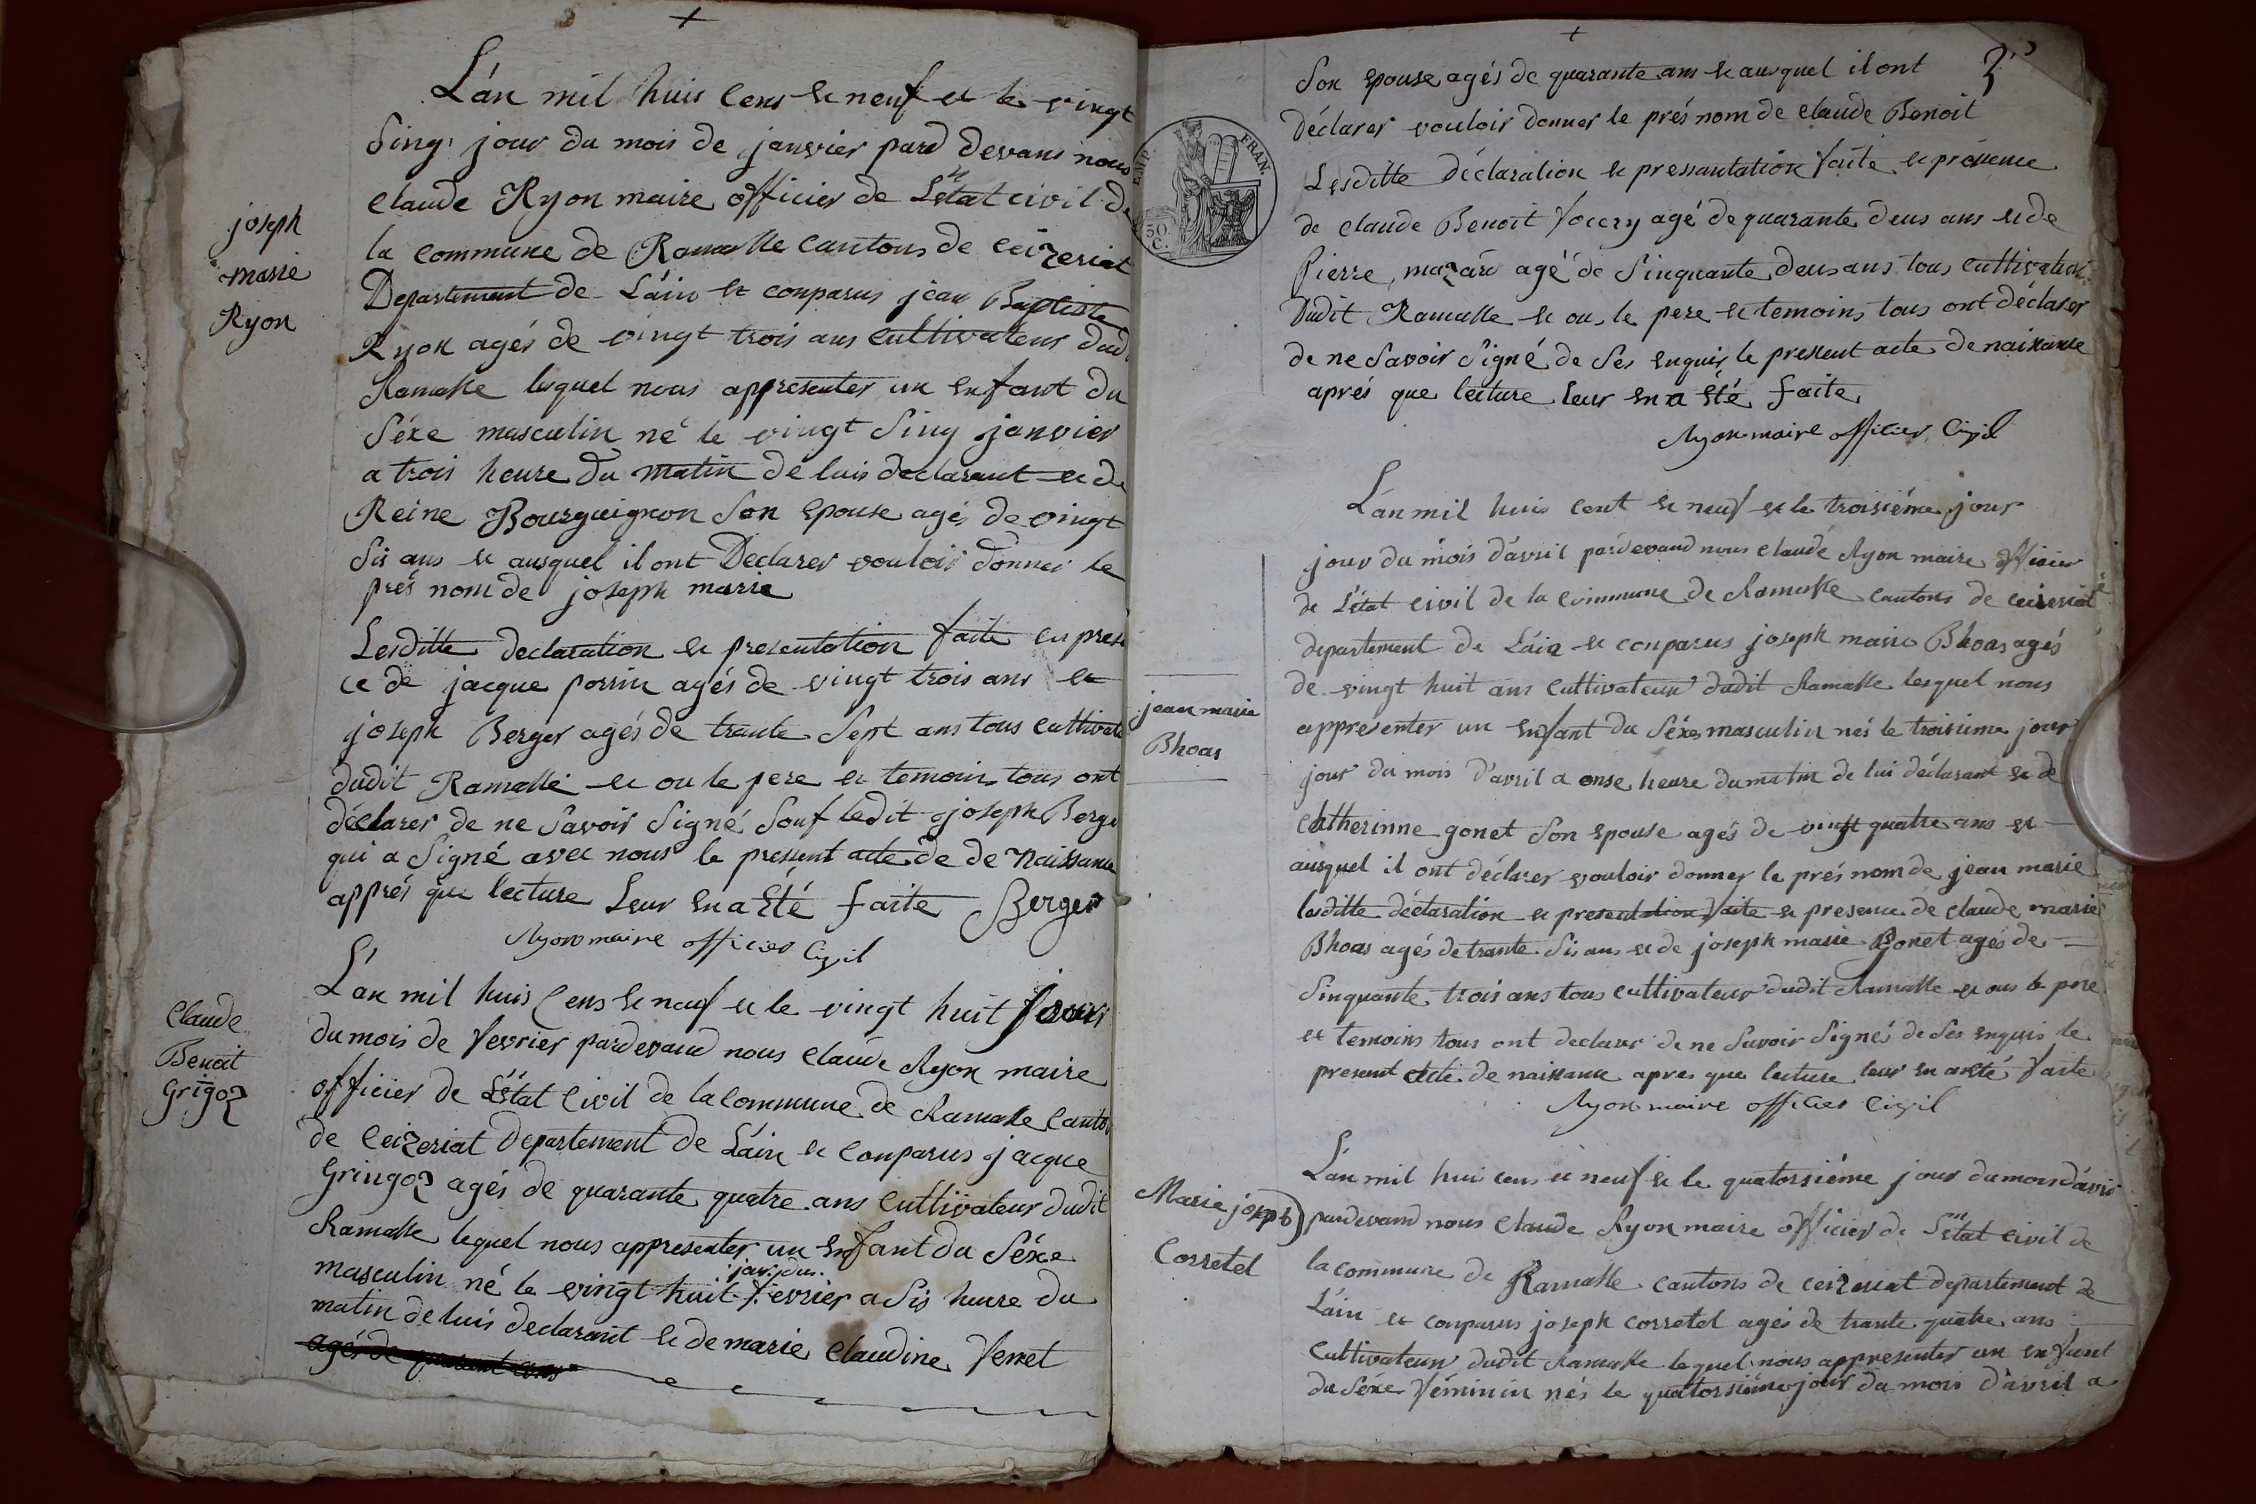 +
L'an mil huis cens et neuf et le vingt
sinq jour du mois de janvier pard devans nous
claude Ryon maire officier de L'état civil de
la commune de Ramasse cantons de ceizeriat
Departement de L'ain et conparus jean Baptiste
Ryon agés de vingt trois ans cultivateur dud
Ramasse lequel nous appresenter un enfant du
séxe masculin né le vingt sinq janvier
a trois heure du matin de luis declarant et de
Reine Bourguignon son epouse agés de vingt
sis ans et ausquel il ont Declarer vouloir donner le
prés nom de joseph marie
Lesditte declaration et presentation faite en presen
ce de jacque porrin agés de vingt trois ans et
joseph Berger agés de trante sept ans tous cultivate
dudit Ramasse et ou le pere et temoins tous ont
déclarer de ne savoir signé souf ledit joseph Berge
qui a signé avec nous le present acte de de naissance
apprés que lecture leur en a été faite Berger
Ryon maire officier civil
joseph
marie
Ryon
L'an mil huis cens et neuf et le vingt huit jours
du mois de fevrier pardevand nous claude Ryon maire
officier de L'état civil de la commune de Ramasse canton
de ceizeriat Departement de L'ain et conparus jacque
Gringoz agés de quarante quatre ans cultivateur dudit
Ramasse lequel nous appresenter un enfant du séxe
jour du
masculin né le vingt huit fevrier a sis heure du
matin de luis declarant et de marie claudine Verret
agés de quarant ans
claude
Benoit
Gringoz
+
3
son epouse agés de quarante ans et ausquel il ont
déclarer vouloir donner le prés nom de claude Benoit
Lesditte déclaration et pressantation faite et présence
de claude Benoit agé de quarante deus ans et de
Pierre mazard agé de sinquante deus ans tous cultivateur
dudit Ramasse et ou le pere et temoins tous ont déclarer
de ne savoir signé de ses enquis le present acte de naissance
aprés que lecture leur en a été faite
Ryon maire officier civil
EMP. FRAN.
50 C.
L'an mil huis cent et neuf et le troisiéme jour
jour du mois d'avril pardevand nous claude Ryon maire officier
de L'état civil de la commune de Ramasse cantons de ceizeriat
departement de L'ain et conparus joseph marie Bhoas agés
de vingt huit ans cultivateur dudit Ramasse lesquel nous
appresenter un enfant du séxe masculin nés le troisiéme jour
jour du mois d'avril a onse heure du matin de lui déclarant et de
catherinne gonet son epouse agés de vingt quatre ans et
ausquel il ont déclarer vouloir donner le prés nom de jean marie
lesditte déclaration et presentation faite et presence de claude marie
Bhoas agés de trante sis ans et de joseph marie Gonet agés de
sinquante trois ans tous cultivateur dudit Ramasse et ous le pere
et temoins tous ont declarer de ne savoir signés de ses enquis le
present acte de naissance apres que lecture leur en a été faite
Ryon maire officier civil
jean marie
Bhoas
L'an mil huis cens et neuf et le quatorsiéme jour du mois d'avril
pardevand nous claude Ryon maire officier de L'état civil de
la commune de Ramasse cantons de ceizeriat departement de
L'ain et conparus joseph corretel agés de trante quatre ans
cultivateur dudit Ramasse lequel nous appresenter un enfant
du séxe féminin nés le quatorsiéme jour du mois d'avril a
Marie joseph
Corretel